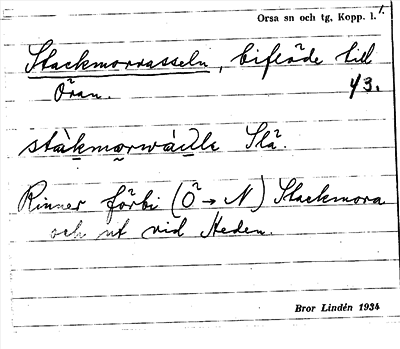 Orsa sn och tg, Kopp. l. 1.
Stackmorrasseln, biflöde till
Öran. 43.
stàkmorwádlę Slä.
Rinner förbi (Ö → N) Stackmora
och ut vid Heden.
Bror Lindén 1934